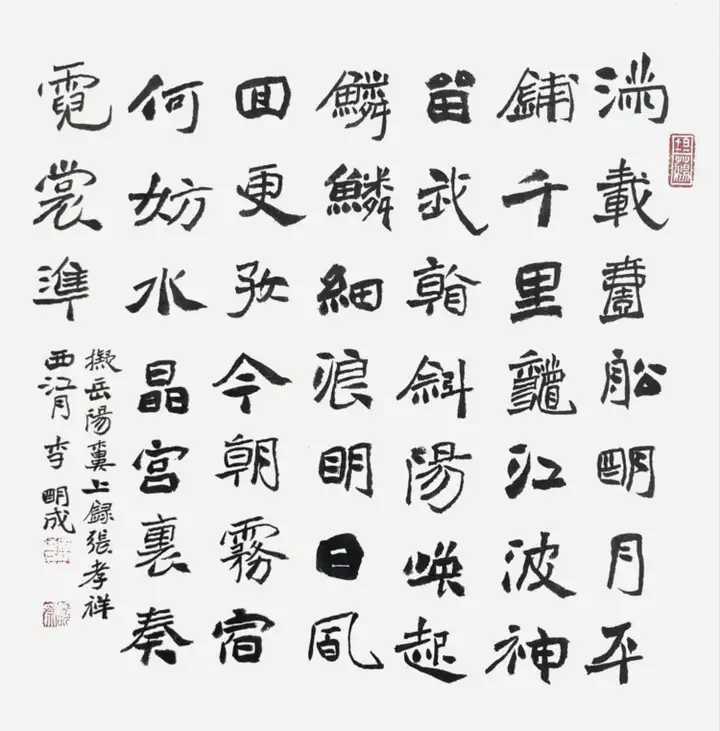 滿載壹船朙月平
鋪千里龝江波神
畱我看斜陽喚起
鱗鱗細浪明日風
回更好今朝霧宿
何妨水晶宮裏奏
霓裳準
擬岳陽婁上録張孝祥
西江月 李朙成